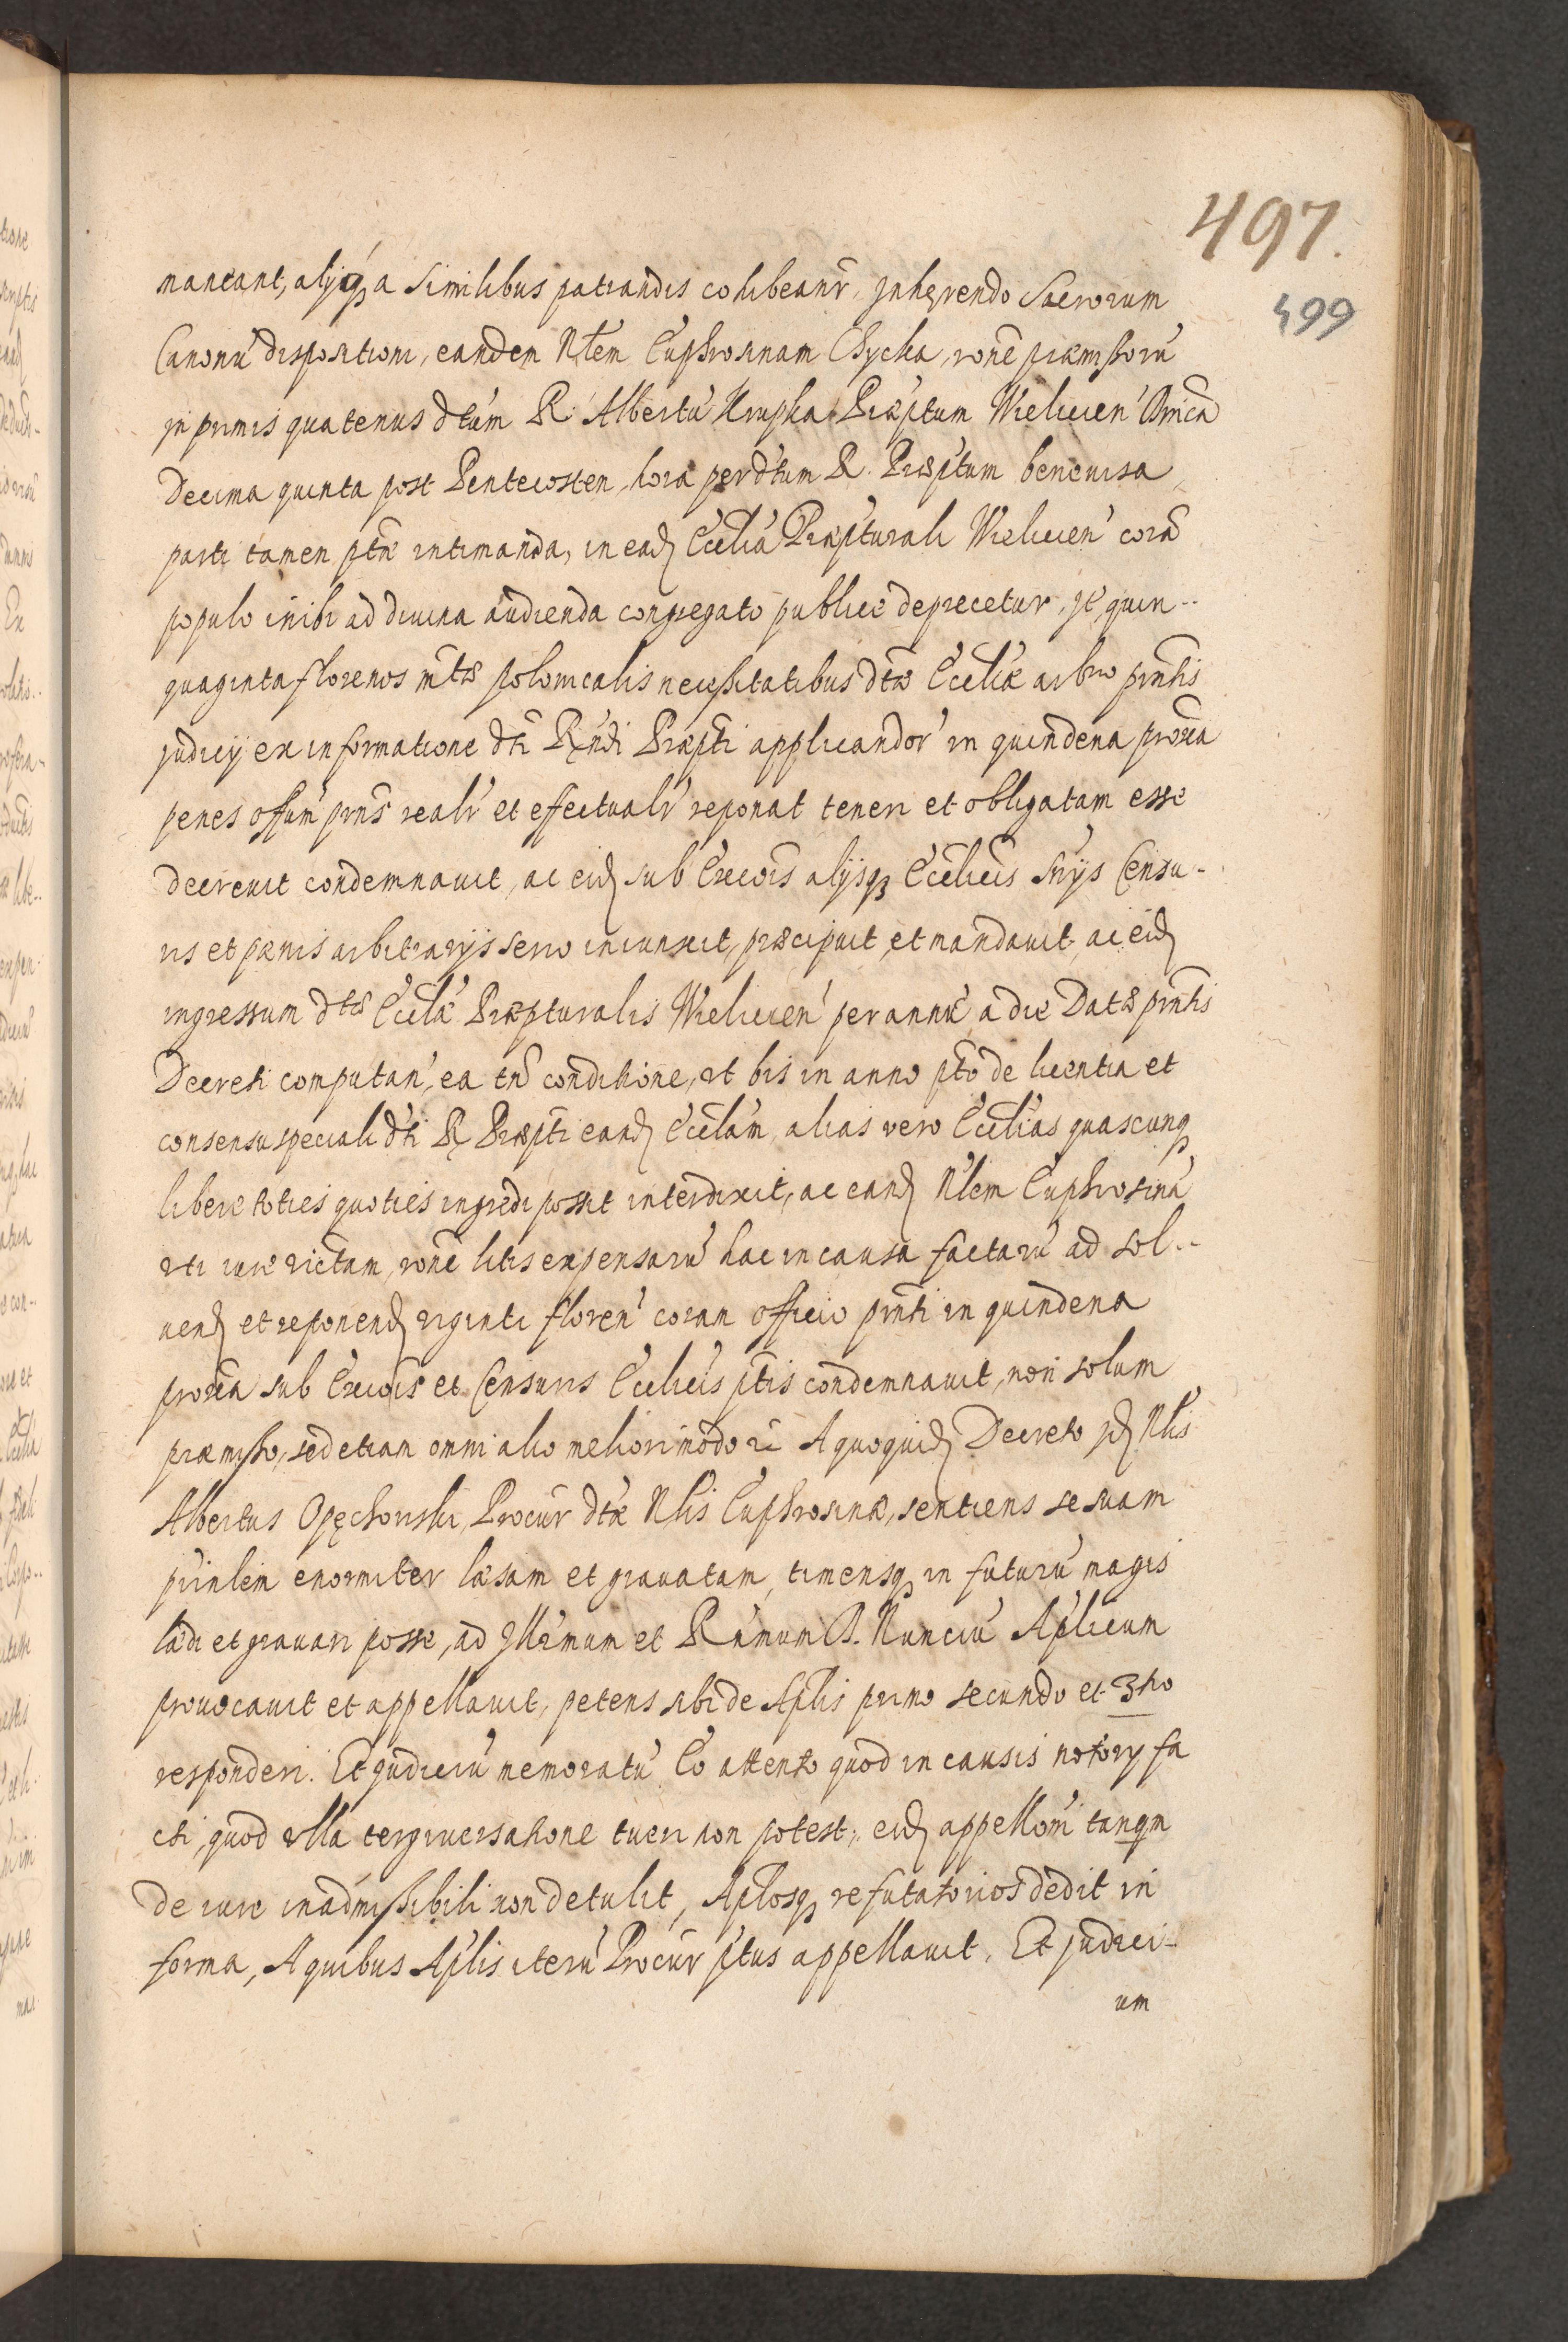 497.
499
maneant, alijq₃ a similibus patrandis cohibeant̃r, Jnhęrendo Sacrorum
Canonu' dispositioni, eandem Nłem Euphrosinam Chycka, roñe præmissoru'
jn primis quatenus dtam R. Albertu' Krupka Præptum Wielicien' Dnica
Decima quinta post Pentecosten, hora per dtum R. Præptum benevisa,
parti tamen ptæ intimanda, in eadɟ Eccłia Præpturali Wielicien' cora
populo inibi ad divina audienda congregato publice deprecetur, Jt' quin--
quaginta florenos mtæ polonicalis necessitatibus dtæ Eccłiæ arbrio pñtis
judicij ex informatione dti Rñdi Præpti applicandor' in quindena proxa
penes offum pñs realr' et efectualr' reponat teneri et obligatam esse
decrevit condemnavit, ac eidɟ sub Excois alijsq₃ Eccłicis Srijs Censu-
ris et pænis arbitrarijs serio iniunxit, præcipuit, et mandavit, ac eidɟ
ingressum dtæ Eccłæ Præpturalis Wielicien' per annu' a die Datæ pñtis
Decreti computan', ea tñ conditione, vt bis in anno pto de licentia et
consensu speciali dti R Præpti eandɟ Eccłam, alias vero Eccłias quascunq₃
libere toties quoties ingredi possit interdixit, ac eandɟ Nłem Euphrosina'
vti iure victam, roñe litis expensaru' hac in causa factaru' ad sol--
uendɟ et reponendɟ viginti floren' coram officio pñti in quindena
proxa sub Excois et Censuris Eccłicis ptis condemnavit, non solum
præmisso, sed etiam omni alio meliori modo A quoquidɟ Decreto Nłis
Albertus Opęchowski, Procur dtæ Nłis Euphrosinæ, sentiens se suam
prinlem enormiter læsam et gravatam, timensq₃ in futuru' magis
lædi et gravari posse, ad Jllrmum et Rmum D. Nunciu' Aplicum
provocavit et appellavit, petens sibi de Aplis primo secundo et 3tio
responderi. Et Judiciu' memoratu' Eo attento quod in causis notorij fa
cti, quod vlla tergiversatione tueri non potest, eidɟ appellom' tanqm
de iure inadmissibili non detulit, Aplosq₃ refutatorios dedit in
forma, A quibus Aplis iteru' Procur ptus appellavit. Et judici-
um